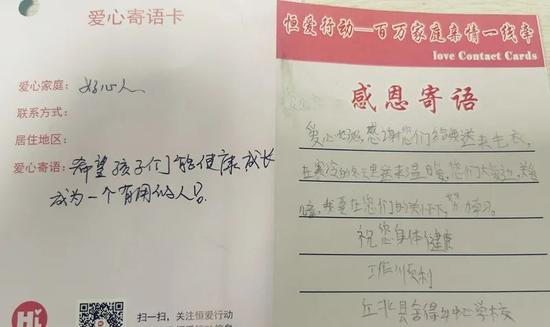 爱心寄语卡
爱心家庭: 好心人
联系方式:
居住地区:
爱心寄语: 希望孩子们能健康成长
成为一个有用的人。
Hi
扫一扫，关注恒爱行动
恒爱行动—百万家庭亲情一线牵
love Contact Cards
感恩寄语
感谢您们给我送去毛衣,
在寒冷的冬天里送来温暖,您们
我要在您们的关怀下,努力学习。
祝您身体健康
工作顺利
丘北县舍得乡中心学校